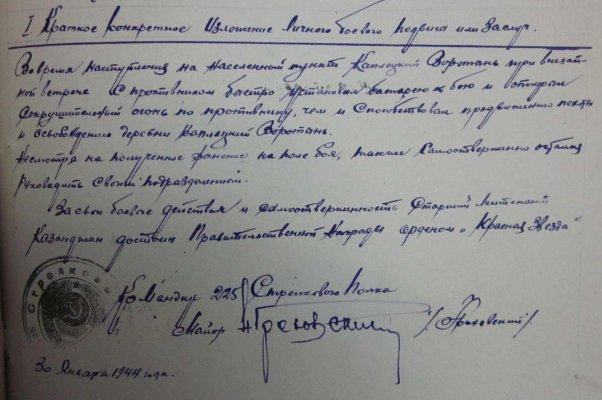 I. Краткое конкретное изложение личного боевого подвига или заслуг.
Вовремя наступления на населенный пункт Каплецкий Воротынь при внезап-
ной встрече с противником быстро установил батарею к бою и открыл
сокрушительный огонь по противнику, чем и способствовал продвижению пехоты
и освобождению деревни Каплецкий Воротынь.
Несмотря на полученное ранение на поле боя, также самоотверженно остался
руководить своим подразделением.
За свои боевые действия и самоотверженность Старший лейтенант
Казанджан достоин Правительственной награды орденом „Красная Звезда"
Командир 225 Стрелкового Полка
Майор Грозовский /Грозовский/.
30 января 1944 года.
Стрелковый